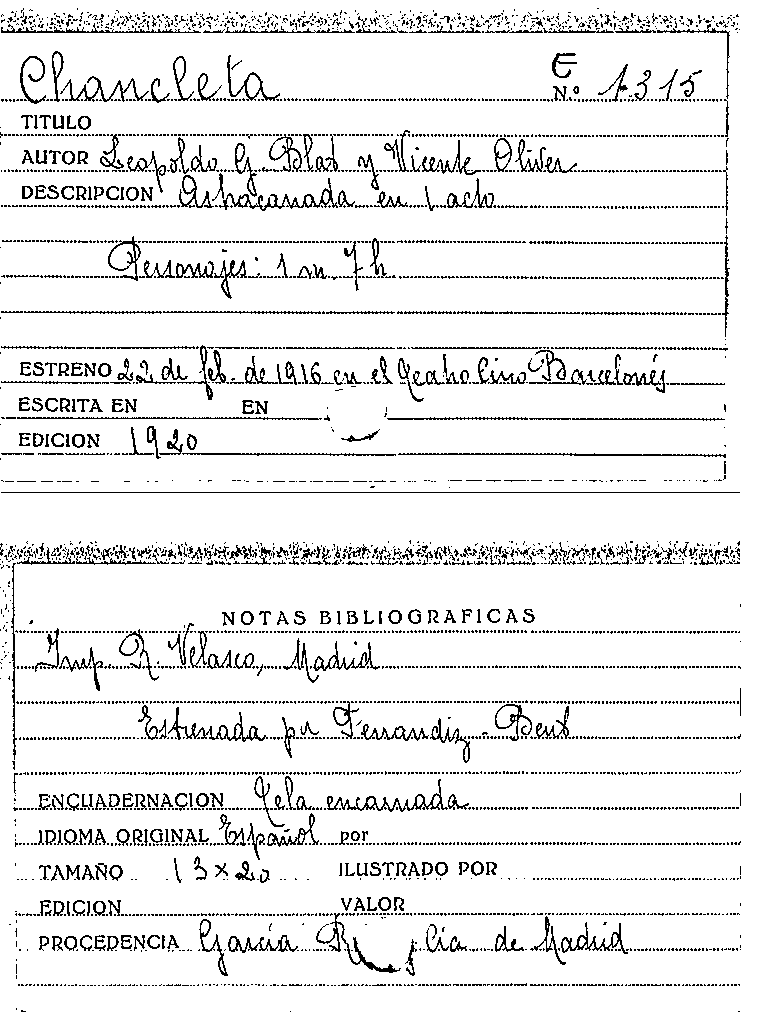 Chancleta
E
N.º 1315
TITULO
AUTOR Leopoldo G. Blat y Vicente Oliver
DESCRIPCION Astracanada en 1 acto
Personajes: 1 m. 7 h.
ESTRENO 22 de feb. de 1916 en el Teatro Circo Barcelonés
ESCRITA EN EN
EDICION 1920
NOTAS BIBLIOGRAFICAS
Imp. R. Velasco, Madrid
Estrenada por Ferrandiz -
ENCUADERNACION Tela encarnada
IDIOMA ORIGINAL Español por
TAMAÑO 13 x 20 ILUSTRADO POR
EDICION VALOR
PROCEDENCIA García y Cía de Madrid